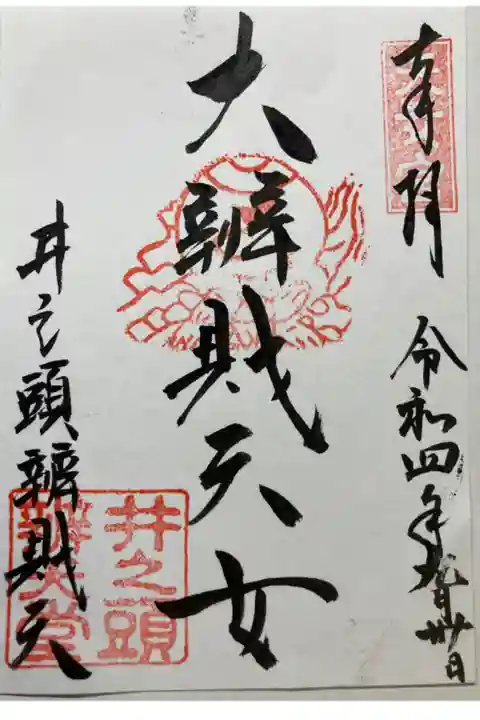 奉拝
令和四年九月廿日
大辨財天女
井之頭辨財天
井之頭
辨天堂